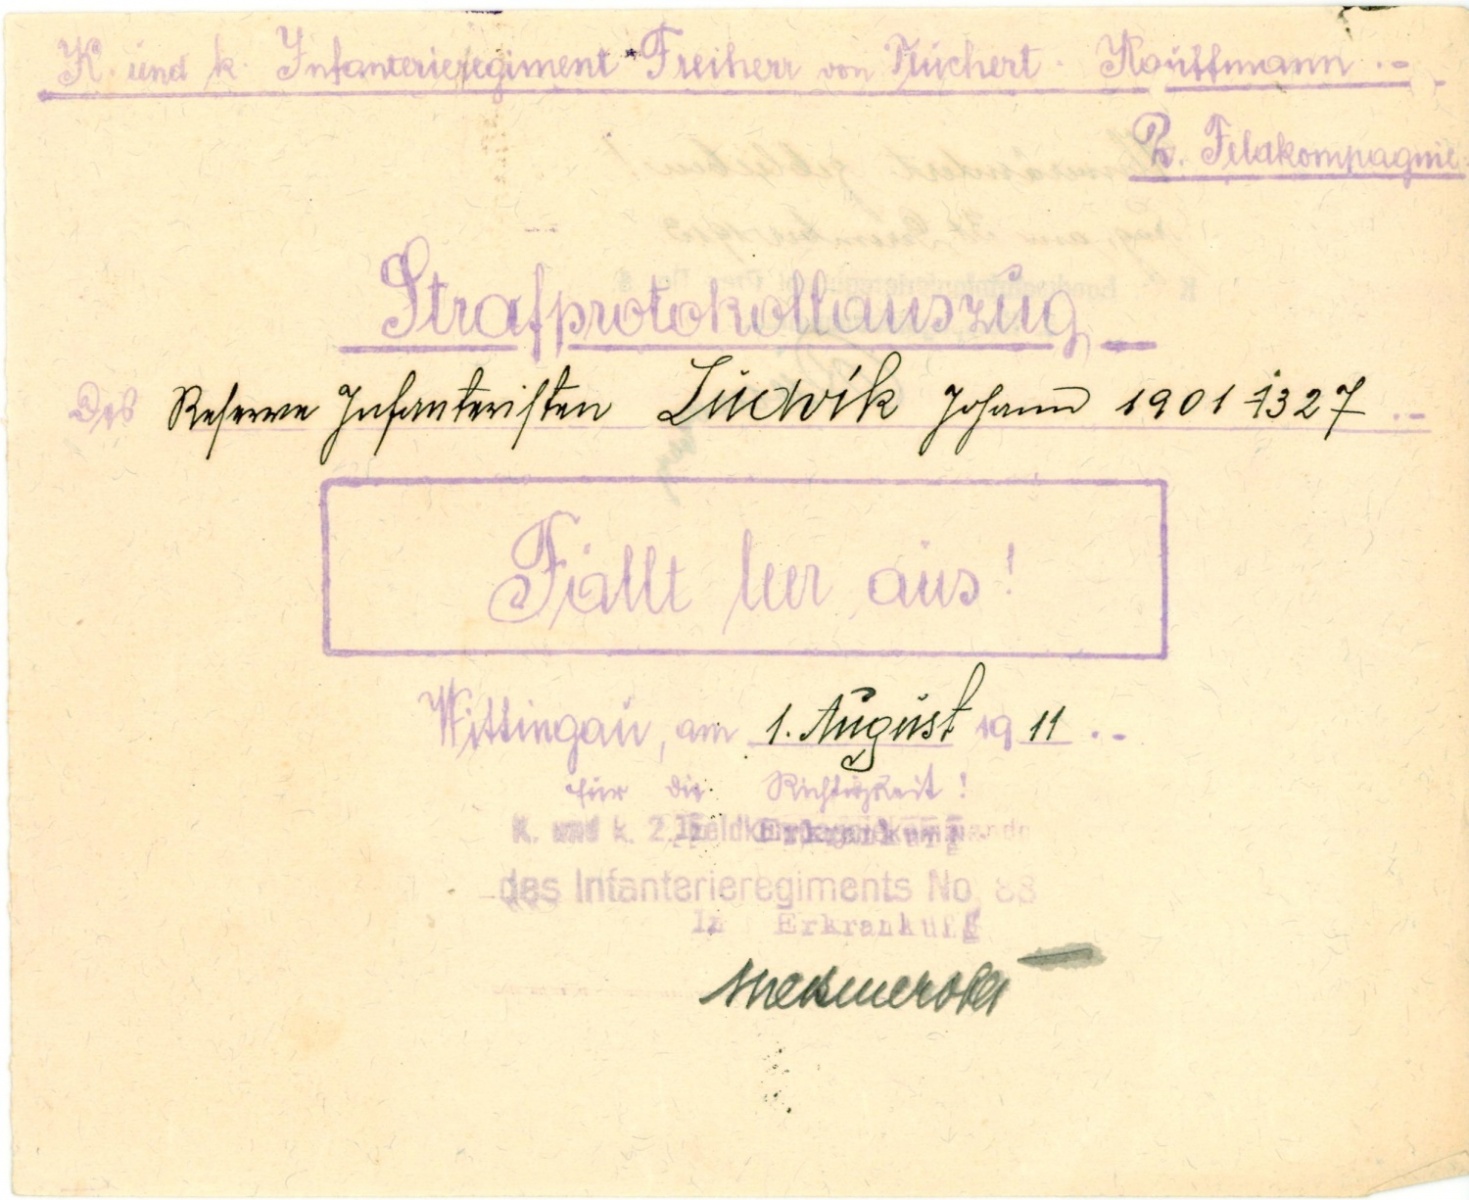 K und k. Infanterieregiment Freiherr von Kauffmann.
2. Feldkompagnie
Strafprotokollauszug
des Reserve Infanteristen Ludvík Johann 1901 1327
Fällt leer aus!
Wittingau, am 1. August 1911
für die Richtigkeit!
K. und k. 2. Feldkompagniekommando
des Infanterieregiments No. 88
In Erkrankung